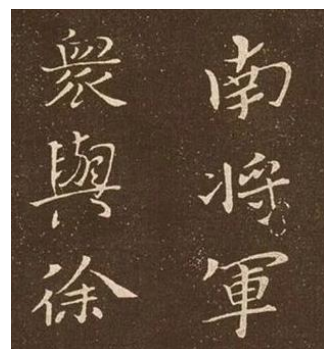 南将軍
衆與徐